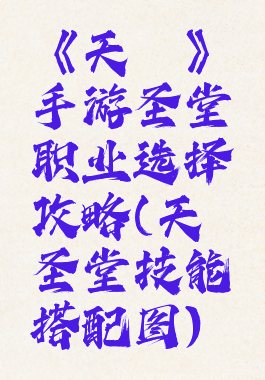 《天　》
手游圣堂
职业选择
攻略(天
圣堂技能
搭配图)